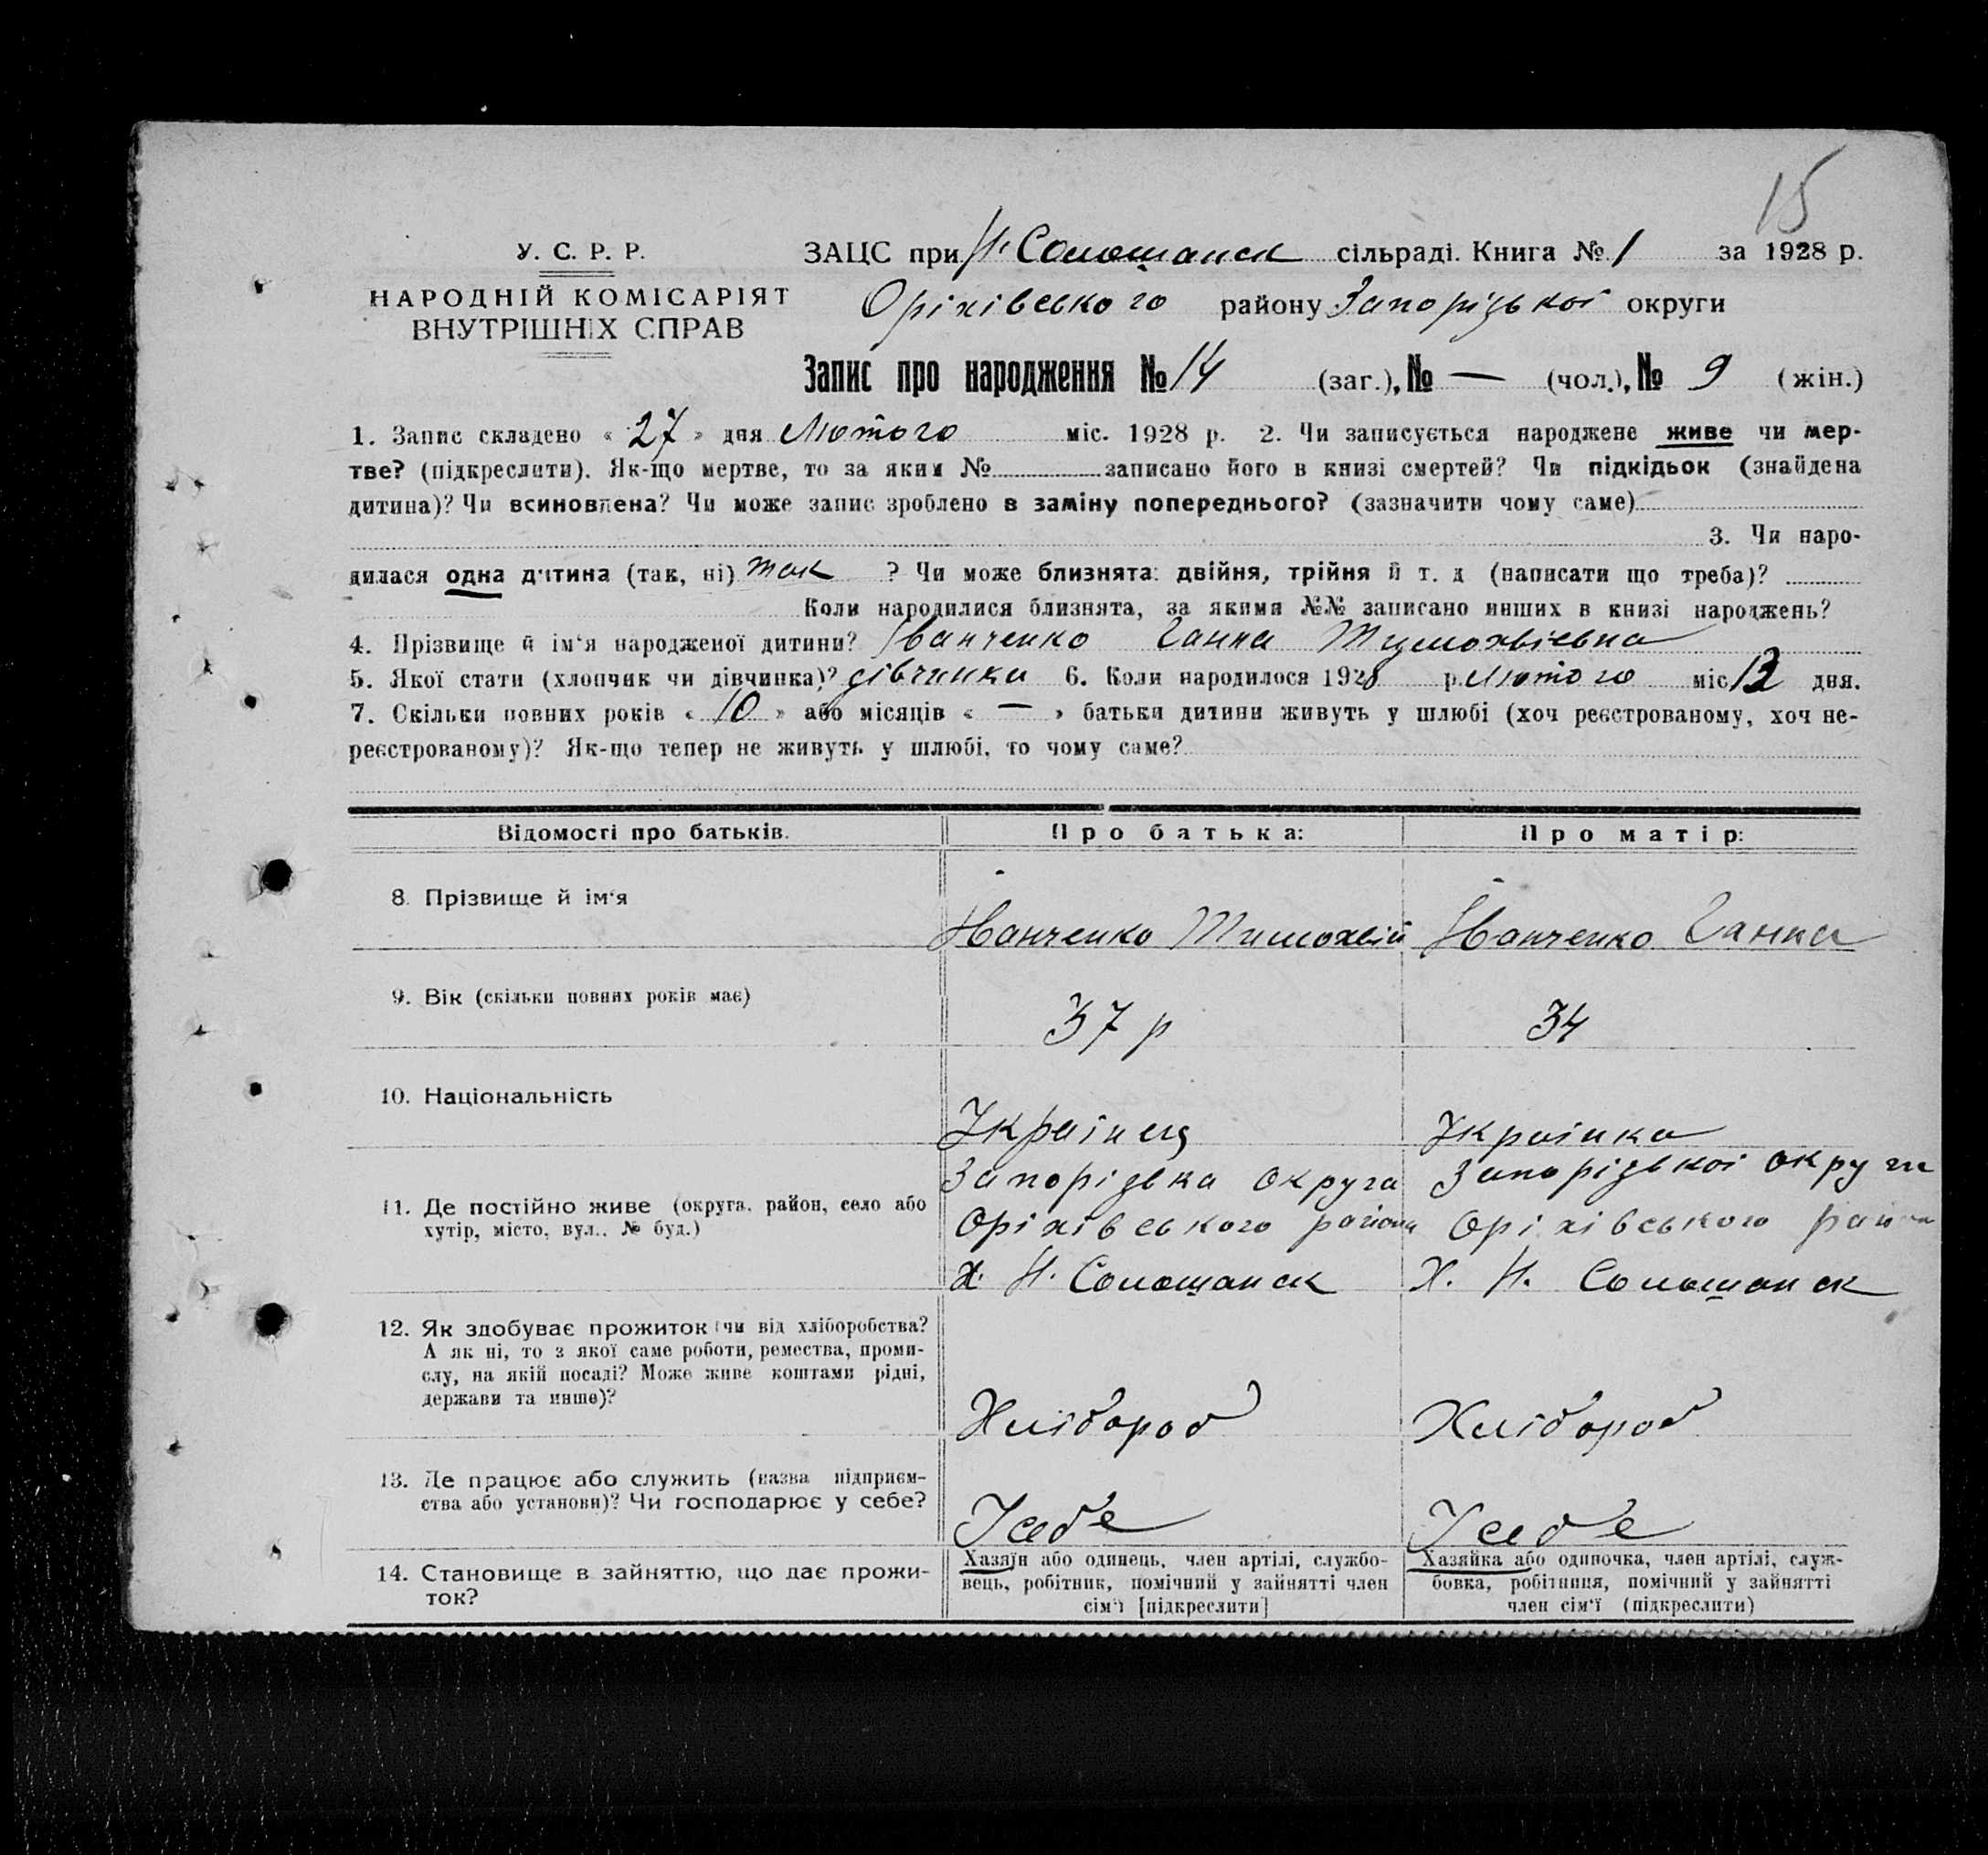 15
У. С. Р. Р.
НАРОДНІЙ КОМІСАРІЯТ
ВНУТРІШНІХ СПРАВ
ЗАЦС при Н. Солошанск сільраді. Книга № 1 за 1928 р.
Оріхівського району Запорізької округи
Запис про народження № 14 (заг.), № — (чол.), № 9 (жін.)
1. Запис складено « 27 » дня Лютого міс. 1928 р. 2. Чи записується народжене живе чи мер-
тве? (підкреслити). Як-що мертве, то за яким № записано його в книзі смертей? Чи підкідьок (знайдена
дитина)? Чи всиновлена? Чи може запис зроблено в заміну попереднього? (зазначити чому саме)
3. Чи наро-
дилася одна дитина (так, ні) так ? Чи може близнята: двійня, трійня й т. д (написати що треба)?
Коли народилися близнята, за якими №№ записано инших в книзі народжень?
4. Прізвище й ім‘я народженої дитини? Іванченко Ганна Тимохвієвна
5. Якої стати (хлопчик чи дівчинка)? дівчинка 6. Коли народилося 1928 р. Лютого міс 13 дня.
7. Скільки повних років « 10 » або місяців « — » батьки дитини живуть у шлюбі (хоч реєстрованому, хоч не-
реєстрованому)? Як-що тепер не живуть у шлюбі, то чому саме?
Відомості про батьків. Про батька: Про матір:
8. Прізвище й ім‘я Іванченко Тимохвій Іванченко Ганна
9. Вік (скільки повних років має) 37 р 34
10. Національність Українець Українка
11. Де постійно живе (округа, район, село або
хутір, місто, вул., № буд.)
Запорізька округа Запорізької округи
Оріхівського района Оріхівського района
Х. Н. Солошанск Х. Н. Солошанск
12. Як здобуває прожиток (чи від хліборобства?
А як ні, то з якої саме роботи, ремества, проми-
слу, на якій посаді? Може живе коштами рідні,
держави та инше)?
Хлібороб Хлібороб
13. Де працює або служить (назва підприєм-
ства або установи)? Чи господарює у себе?
Усебе Усебе
14. Становище в зайняттю, що дає прожи-
ток?
Хазяїн або одинець, член артілі, службо-
вець, робітник, помічний у зайнятті член
сім‘ї [підкреслити]
Хазяйка або одиночка, член артілі, служ-
бовка, робітниця, помічний у зайнятті
член сім‘ї (підкреслити)